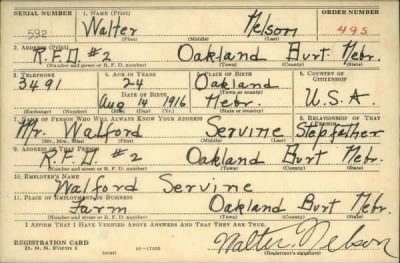 SERIAL NUMBER 1. NAME (Print) ORDER NUMBER
592 Walter Nelson 495
(First) (Middle) (Last)
2. ADDRESS (Print)
R.F.D. #2 Oakland Burt Nebr.
(Number and street or R. F. D. number) (Town) (County) (State)
3. TELEPHONE 4. AGE IN YEARS 5. PLACE OF BIRTH 6. COUNTRY OF CITIZENSHIP
3491 24 Oakland
DATE OF BIRTH (Town or county)
Aug 14 1916 Nebr. U.S.A.
(Exchange) (Number) (Mo.) (Day) (Yr.) (State or country)
7. NAME OF PERSON WHO WILL ALWAYS KNOW YOUR ADDRESS 8. RELATIONSHIP OF THAT PERSON
Mr. Walford Servine Stepfather
(Mr., Mrs., Miss) (First) (Middle) (Last)
9. ADDRESS OF THAT PERSON
R.F.D. #2 Oakland Burt Nebr.
(Number and street or R. F. D. number) (Town) (County) (State)
10. EMPLOYER'S NAME
Walford Servine
11. PLACE OF EMPLOYMENT OR BUSINESS
Farm Oakland Burt Nebr.
(Number and street or R. F. D. number) (Town) (County) (State)
I AFFIRM THAT I HAVE VERIFIED ABOVE ANSWERS AND THAT THEY ARE TRUE.
REGISTRATION CARD
D. S. S. Form 1 16-17105 Walter Nelson
(Registrant's signature)